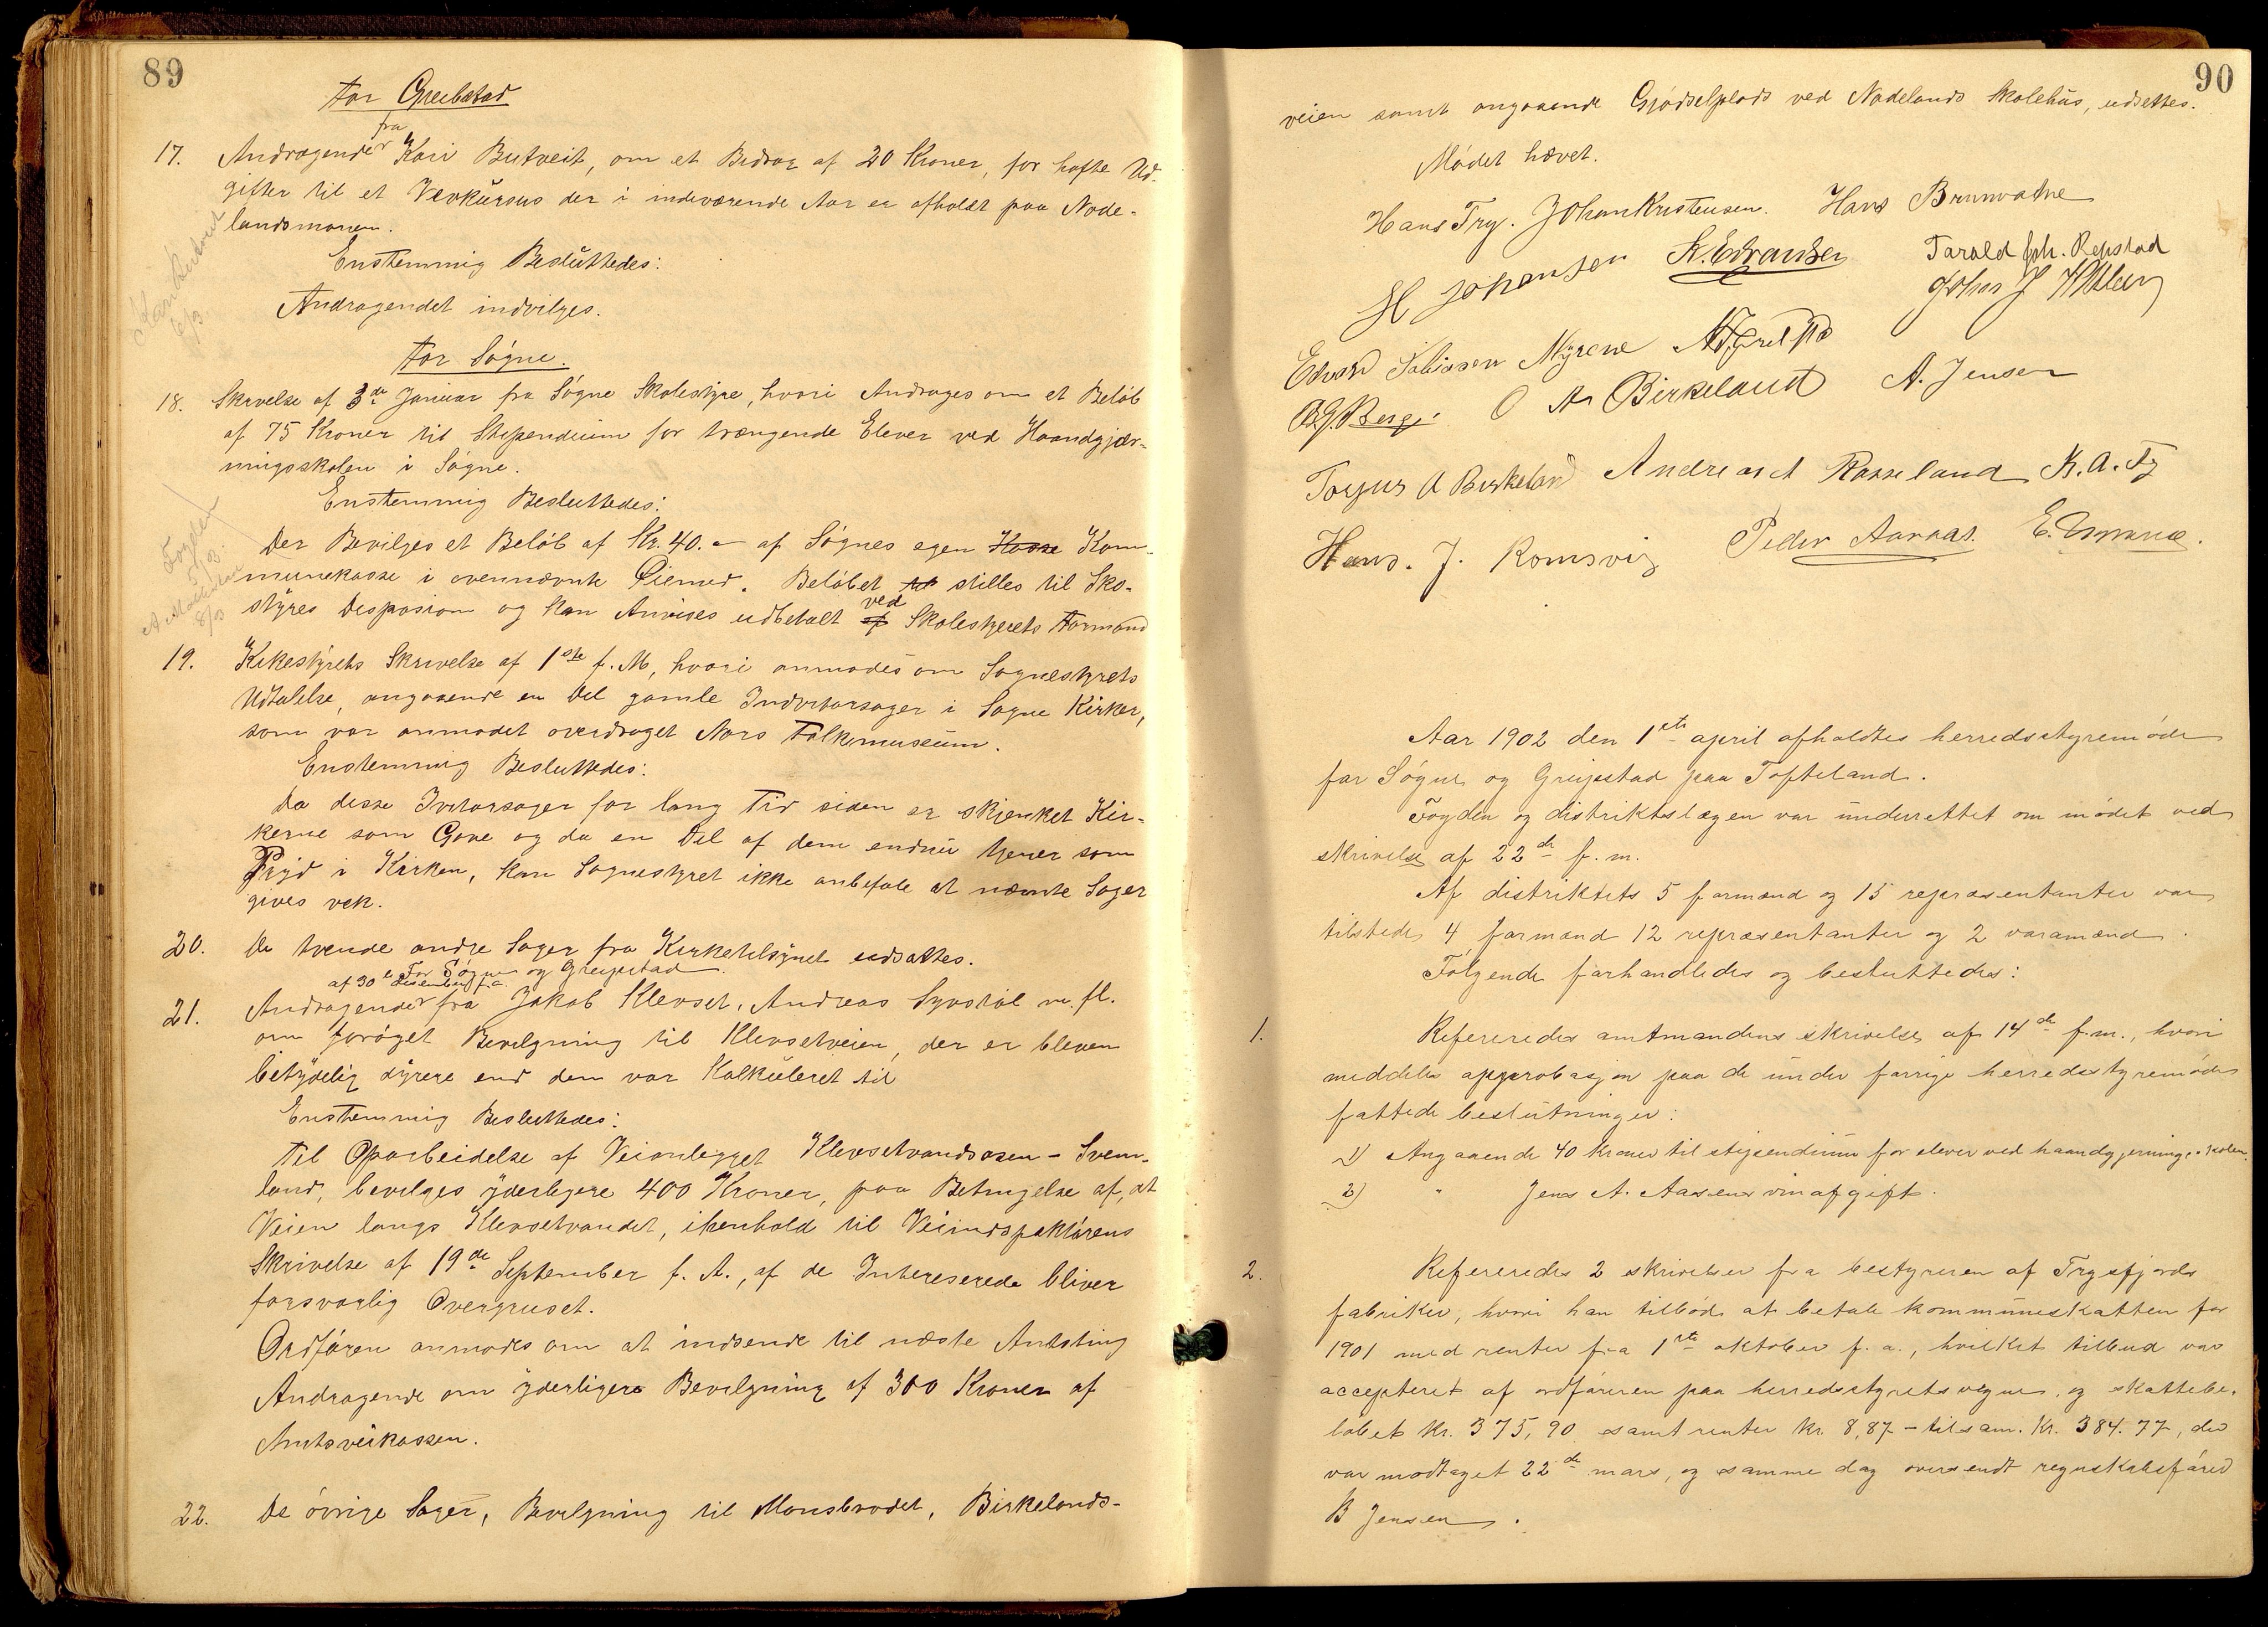 89
For Greibstad
fra
17. Andragender Kari Butveit, om et Bidrag af 20 Kroner, for hafte Ud-
gifter til et Vevkursus der i indeværende Aar er afholdt paa Node-
landsmonen.
Enstemmig Besluttedes:
Andragendet indvilges.
For Søgne.
18. Skrivelse af 3de Januar fra Søgne Skolestyre, hvori Andrages om et Beløb
af 75 Kroner til Stipendium for trængende Elever ved Haandgjær-
ningsskolen i Søgne.
Enstemmig Besluttedes:
Der Bevilges et Beløb af Kr. 40.- af Søgnes egen Kasse Kom-
munekasse i ovennævnte Øiemed. Beløbet til stilles til Sko-
ved
styres Disposion og kan Anvises udbetalt af Skolestyrets Formand
19. Kirkestyrets Skrivelse af 1ste f. M, hvori anmodes om Sognestyrets
Udtalelse, angaaende en Del gamle Indvetarsager i Søgne Kirker,
som var anmodet overdraget Nors Folkmuseum.
Enstemmig Besluttedes:
Da disse Ivetarsager for lang Tid siden er skjenket Kir-
kerne som Gave og da en Del af dem endnu tjener som
Pryd i Kirken, kan Sognestyret ikke anbefale at nævnte Sager
gives vek.
20. De tvende andre Sager fra Kirketilsynet udsattes.
For Søgne og Greipstad
af 30te Desember f.a.
21. Andragender fra Jakob Klevset, Andreas Systøl m. fl.
om forøget Bevilgning til Klevsetveien, der er bleven
betydelig dyrere end den var Kalkuleret til
Enstemmig Besluttedes:
Til Oparbeidelse af Veianlegget Klevsetvandsosen - Svem-
land, bevilges yderligere 400 Kroner, paa Betingelse af, at
Veien langs Klevsetvandet, ihenhold til Veiindspektørens
Skrivelse af 19de September f. A., af de Intereserede bliver
forsvarlig Overgruset.
Ordføren anmodes om at indsende til næste Amtsting
Andragende om yderligere Bevilgning af 300 Kroner af
Amtsveikassen.
22. De øvrige Sager, Bevilgning til Monsbrodet, Birkelands-
90
veien samt angaaende Gjødselplads ved Nodelands Skolehus, udsettes.
Mødet hævet.
Hans Try. Johan Kristensen. Hans Brunvatne
H Johansen Tarald Joh. Repstad
Edvard Tobiassen Myrene
O As Birkeland A. Jensen
Torjus A Birkeland Andreas A Rosseland K. A. Try
Hans. J. Romsvig Peder Aaraas.
Aar 1902 den 1ste april afholdtes herredsstyremøde
for Søgne og Greipstad paa Tofteland.
Fogden og distriktslægen var underrettet om mødet ved
skrivelse af 22de f. m.
Af distriktets 5 formænd og 15 repræsentanter var
tilstede 4 formænd 12 repræsentanter og 2 varamænd.
Følgende forhandledes og besluttedes:
1. Refereredes amtmandens skrivelse af 14de f.m., hvori
meddeles approbasjon paa de under forrige herredsstyremøde
fattede beslutninger:
1) Angaaende 40 kroner til stipendium for elever ved haandgjerningsskolen.
2) " Jens A. Aasens vinafgift.
2. Refereredes 2 skrivelser fra bestyreren af Trysfjords
fabriker, hvori han tilbød at betale kommuneskatten for
1901 med renter fra 1ste oktober f. a., hvilket tilbud var
accepteret af ordføreren paa herredsstyrets vegne, og skattebe-
løbet kr. 375,90 samt renter kr. 8,87 - tilsam. Kr. 384.77, der
var modtaget 22de mars, og samme dag oversendt regnskabsfører
B Jensen.